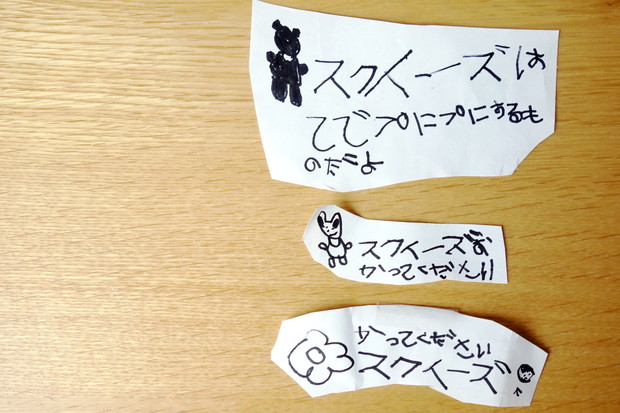 スクイーズは
てでプにプにするも
のだよ
スクイーズお
かってくださいり
かってください
スクイーズ